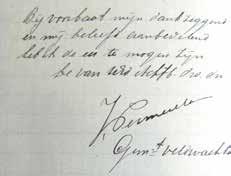 Bij voorbaat mijn dank zeggend
en mij beleefd aanbevelend
heb ik de eer te mogen zijn
de van
J Vermeule
Gem.t veldwachter